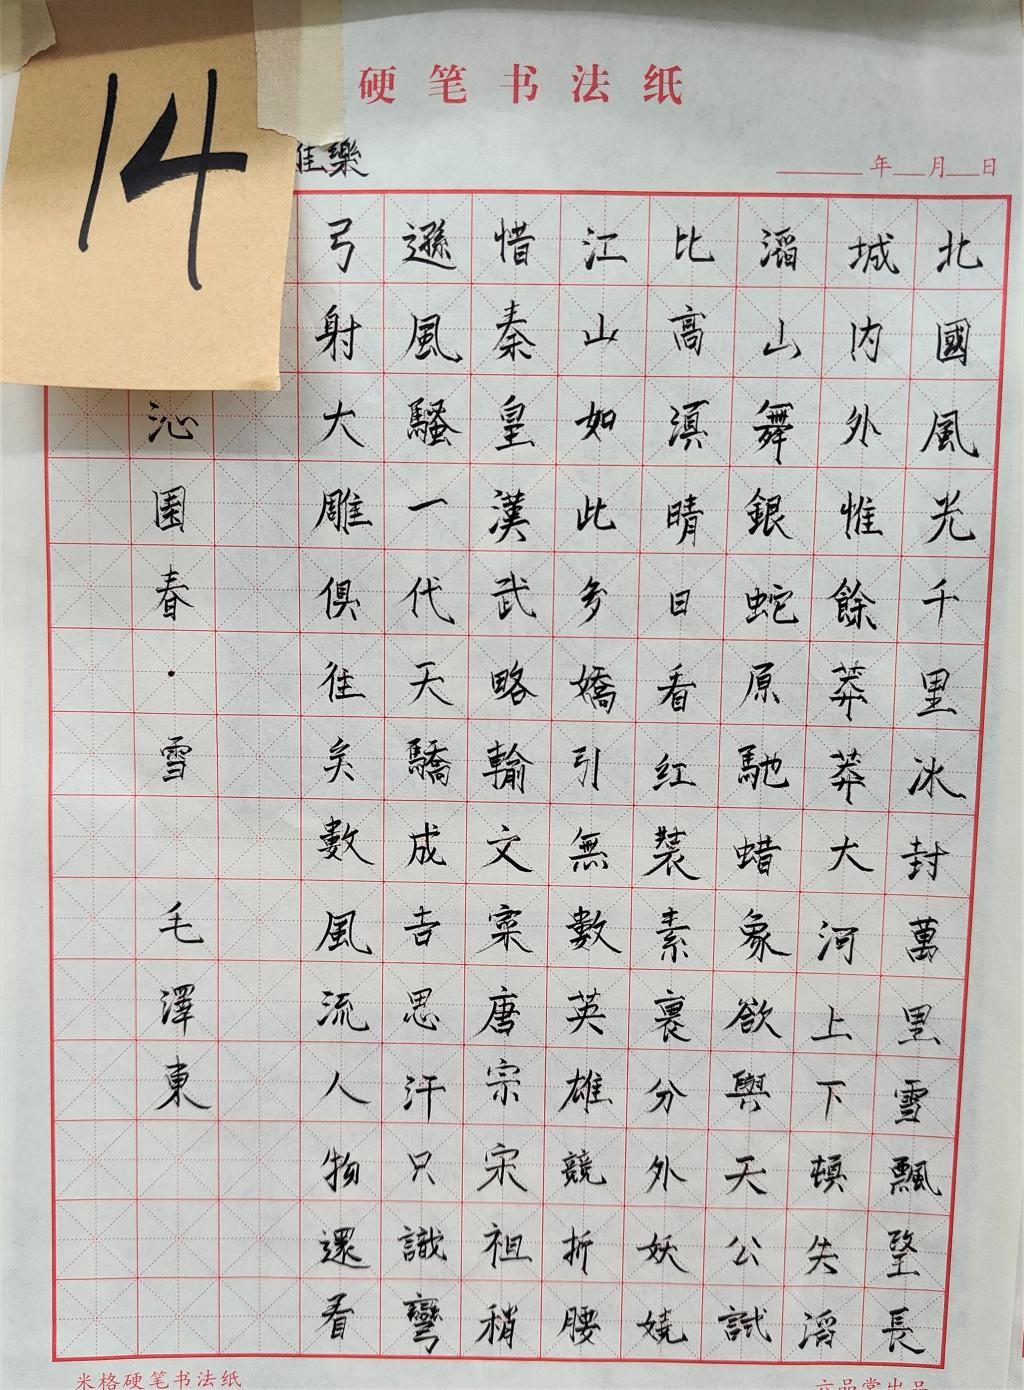 硬笔书法纸
14
佳樂
年 月 日
北國風光千里冰封萬里雪飄望長
城内外惟餘莽莽大河上下頓失滔
滔山舞銀蛇原馳蜡象欲與天公試
比高湏晴日看紅裝素裹分外妖嬈
江山如此多嬌引無數英雄競折腰
惜秦皇漢武略輸文寀唐宗宋祖稍
遜風騷一代天驕成吉思汗只識彎
弓射大雕俱往矣數風流人物還看
沁園春·雪 毛澤東
米格硬笔书法纸